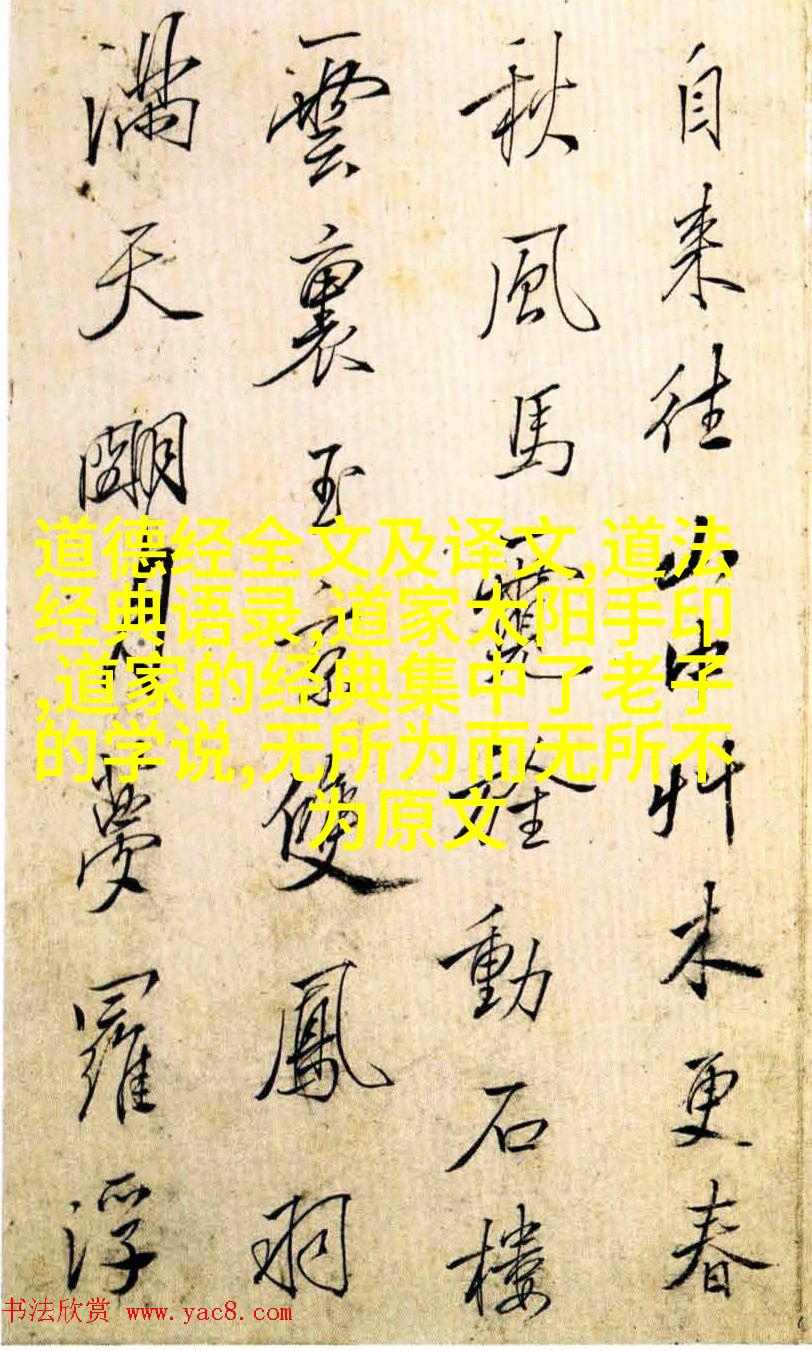 自来往山中艸木更春
秋風馬霓旌動石樓
雲裏玉京雙鳳羽
滿天朙月夢羅浮
道德经全文及译文,道法
经典语录,道家太阳手印
,道家的经典集中了老子
的学说,无所为而无所不
为原文
书法欣赏 www.yac8.com